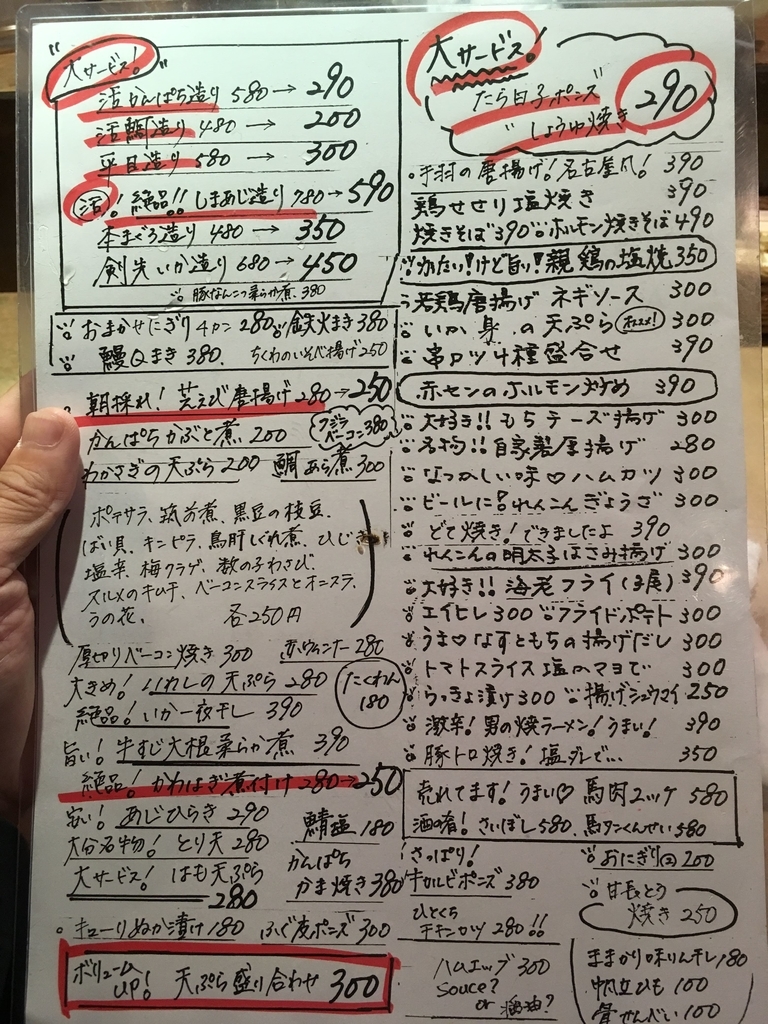 "大サービス!"
活かんぱち造り 580→ 290
活鯛造り 480 → 200
平目造り 580 → 300
活! 絶品!! しまあじ造り 780→590
本まぐろ造り 480→350
剣先いか造り 680→450
豚なんこつ柔らか煮 380
おまかせにぎり4カン 280 鉄火まき 380
鰻Qまき 380. ちくわのいそべ揚げ 250
朝採れ! 芝えび唐揚げ 280→250
かんぱちかぶと煮 200
クジラベーコン 380
わかさぎの天ぷら 200 鯛あら煮 300
ポテサラ、筑前煮、黒豆の枝豆、
ばい貝、キンピラ、鳥肝しぐれ煮、ひじき
塩辛、梅クラゲ、数の子わさび、
スルメのキムチ、ベーコンスライスとオニスラ、
うの花、 各250円
厚切りベーコン焼き 300 赤ウィンナー 280
大きめ! いわしの天ぷら 280
たくわん 180
絶品! いか一夜干し 390
旨い! 牛すじ大根柔らか煮 390
絶品! かわはぎ煮付け 280→250
安い! あじひらき 290
鯖塩 180
大分名物! とり天 280
大サービス! はも天ぷら 280
かんぱち
かま焼き 380
キューリぬか漬け 180 ふぐ皮ポンズ 300
ボリュームUP! 天ぷら盛り合わせ 300
大サービス!
たら白子ポンズ
〃 しょうゆ焼き 290
手羽の唐揚げ! 名古屋風! 390
鶏せせり塩焼き 390
焼きそば 390 ホルモン焼きそば 490
かたい!けど旨い! 親鶏の塩焼 350
若鶏唐揚げ ネギソース 300
いか 身 の天ぷら オススメ! 300
串カツ4種盛合せ 390
赤センのホルモン炒め 390
大好き!! もちチーズ揚げ 300
名物!! 自家製厚揚げ 280
なつかしい味♡ハムカツ 300
ビールに◎れんこんぎょうざ 300
どて焼き! できましたよ 390
れんこんの明太子はさみ揚げ 300
大好き!! 海老フライ(3尾) 390
エイヒレ 300 フライドポテト 300
うま♡なすともちの揚げだし 300
トマトスライス 塩orマヨで 300
らっきょ漬け 300 揚げシュウマイ 250
激辛! 男の焼ラーメン! うまい! 390
豚トロ焼き! 塩ダレで… 350
売れてます! うまい♡ 馬肉ユッケ 580
酒の肴! さいぼし 580. 馬タンくんせい 580
さっぱり!
牛カルビポンズ 380
おにぎり 200
ひとくち
チキンカツ 280!!
甘長とう
焼き 250
ハムエッグ 300
souce?
or 醤油?
ままかり味りん干し 180
帆立ひも 100
骨せんべい 100